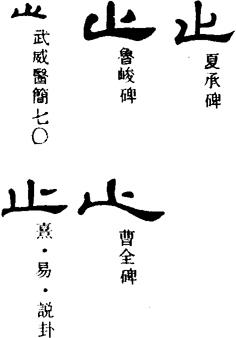 止 武威醫簡七〇
止 魯峻碑
止 夏承碑
止 熹·易·説卦
止 曹全碑